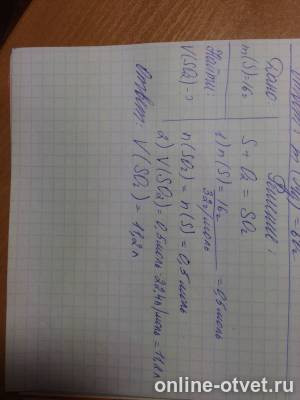 Дано:
m(S)=16г
Найти:
V(SO₂)-?
Решение:
S + O₂ = SO₂
1) n(S) = 16г / 32г/моль = 0,5 моль
n(SO₂) = n(S) = 0,5 моль
2) V(SO₂) = 0,5 моль · 22,4 л/моль = 11,2 л
Ответ: V(SO₂) = 11,2 л
online-otvet.ru